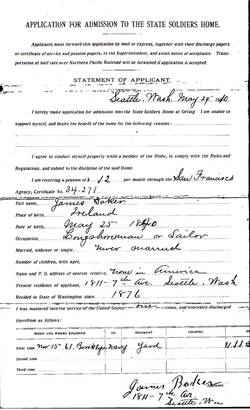 APPLICATION FOR ADMISSION TO THE STATE SOLDIERS HOME.
Applicants must forward this application by mail or express, together with their discharge papers
or certificate of service and pension papers, to the Superintendent, and await notice of acceptance. Trans-
portation at half rate over Northern Pacific Railroad will be furnished if application is accepted.
STATEMENT OF APPLICANT.
Seattle, Wash May 24
I hereby make application for admission into the State Soldiers Home at Orting. I am unable to
support myself, and desire the benefit of the home for the following reasons:
I agree to conduct myself properly while a member of the Home, to comply with the Rules and
Regulations, and subject to the discipline of the said Home.
I am receiving a pension of $ 12 per month through the San Francisco
Agency, Certificate No. 34.271
Full name, James Baker
Place of birth, Ireland
Date of birth, May 25th 1840
Occupation, Longshoreman or Sailor
Married, widower or single, never married
Number of children, with ages,
Name and P. O. address of nearest relative, none in America
Present residence of applicant, 1811-7th Ave. Seattle, Wash
Resided in State of Washington since 1876
I was mustered into the service of the United States one times, and honorably discharged
therefrom as follows:
WHEN AND WHERE ENLISTED CO. REGIMENT
First time Nov 15th 61. Brooklyn Navy Yard
Second time
Third time
James Baker
1811-7th Ave.
Seattle, Wn